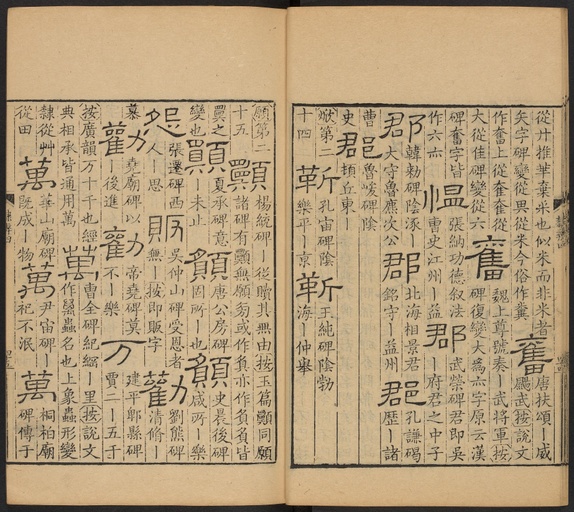 從廾推華棄釆也似米而非米者奮唐扶頌丨威
矢字碑變從異從米今俗作糞颺武按說文
作奮奮上從奞奞從奮魏上尊號奏丨武將軍按
大從隹碑變從六碑復變大爲六字原云漢
碑奮字皆愠張納功德敘法郡武榮碑君即吳
作六六曹史江州丨益丨府君之中子
郡韓勑碑陰涿丨郡北海相景君郡孔謙碣
郡太守魯麃次公銘守丨益州歷丨諸
曹郡魯峻碑陰
史頓丘東丨
焮第二靳孔宙碑陰靳王純碑陰勃
十四樂平丨京海丨仲舉
願第二顥楊統碑丨從贖其無由按玉篇顥同願
十五諸碑有顥無願
夏承碑意唐公房碑史晨後碑
變也丨未止㒺所丨也咸所丨樂
怨張遷碑西販吳仲山碑受恩者劝劉熊碑
人丨思無丨按即販字清脩丨
慕劝堯廟碑以劝帝堯碑莫万建平郫縣碑
丨後進不丨樂賈二丨五千
按廣韻万十千也經萬曹全碑紀綱丨里按說文
典相承皆通用萬作蟲名也上象蟲形變
隸從艸萬華山廟碑萬尹宙碑丨萬桐柏廟
從田旣成丨物祀不泯碑傳于